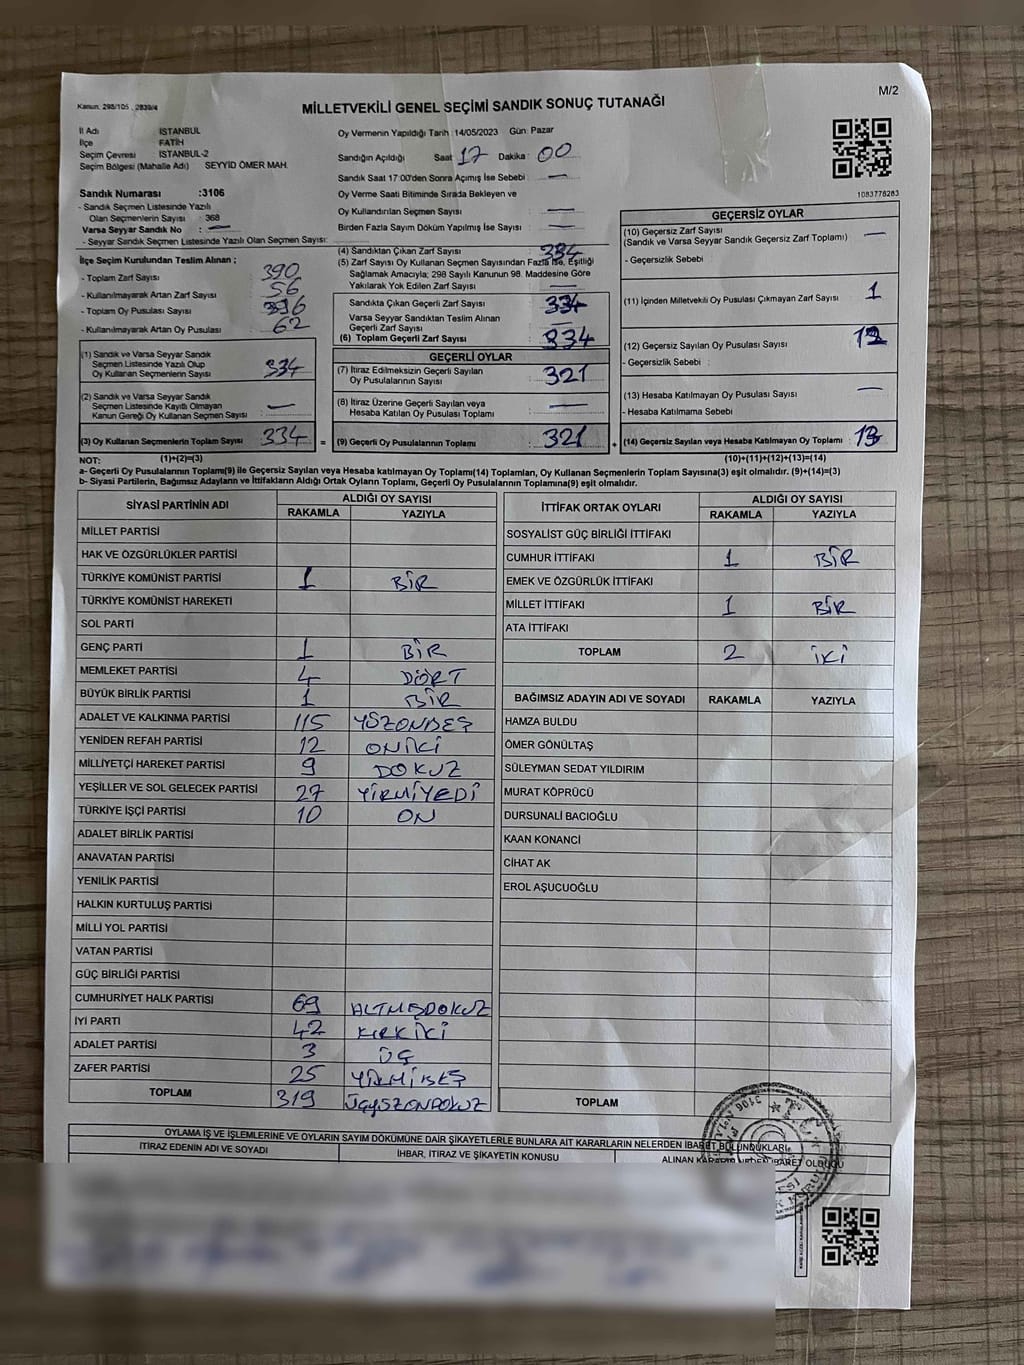 Kanun: 298/105 , 2839/4
M/2
MİLLETVEKİLİ GENEL SEÇİMİ SANDIK SONUÇ TUTANAĞI
İl Adı İSTANBUL
İlçe FATİH
Seçim Çevresi İSTANBUL-2
Seçim Bölgesi (Mahalle Adı) SEYYİD ÖMER MAH.
Sandık Numarası :3106
- Sandık Seçmen Listesinde Yazılı
Olan Seçmenlerin Sayısı : 368
Varsa Seyyar Sandık No : —
- Seyyar Sandık Seçmen Listesinde Yazılı Olan Seçmen Sayısı:
İlçe Seçim Kurulundan Teslim Alınan ;
- Toplam Zarf Sayısı : 390
- Kullanılmayarak Artan Zarf Sayısı : 56
- Toplam Oy Pusulası Sayısı : 396
- Kullanılmayarak Artan Oy Pusulası : 62
(1) Sandık ve Varsa Seyyar Sandık
Seçmen Listesinde Yazılı Olup
Oy Kullanan Seçmenlerin Sayısı : 334
(2) Sandık ve Varsa Seyyar Sandık
Seçmen Listesinde Kayıtlı Olmayan
Kanun Gereği Oy Kullanan Seçmen Sayısı : —
(3) Oy Kullanan Seçmenlerin Toplam Sayısı 334 =
Oy Vermenin Yapıldığı Tarih : 14/05/2023 Gün: Pazar
Sandığın Açıldığı Saat : 17 Dakika : 00
Sandık Saat 17:00'den Sonra Açımış İse Sebebi : —
Oy Verme Saati Bitiminde Sırada Bekleyen ve
Oy Kullandırılan Seçmen Sayısı : —
Birden Fazla Sayım Döküm Yapılmış İse Sayısı : —
(4) Sandıktan Çıkan Zarf Sayısı : 334
(5) Zarf Sayısı Oy Kullanan Seçmen Sayısından Fazla İse, Eşitliği
Sağlamak Amacıyla; 298 Sayılı Kanunun 98. Maddesine Göre
Yakılarak Yok Edilen Zarf Sayısı : —
Sandıkta Çıkan Geçerli Zarf Sayısı : 334
Varsa Seyyar Sandıktan Teslim Alınan
Geçerli Zarf Sayısı : —
(6) Toplam Geçerli Zarf Sayısı : 334
GEÇERLİ OYLAR
(7) İtiraz Edilmeksizin Geçerli Sayılan
Oy Pusulalarının Sayısı : 321
(8) İtiraz Üzerine Geçerli Sayılan veya
Hesaba Katılan Oy Pusulası Toplamı : —
(9) Geçerli Oy Pusulalarının Toplamı : 321 +
1083778263
GEÇERSİZ OYLAR
(10) Geçersiz Zarf Sayısı : —
(Sandık ve Varsa Seyyar Sandık Geçersiz Zarf Toplamı)
- Geçersizlik Sebebi :
(11) İçinden Milletvekili Oy Pusulası Çıkmayan Zarf Sayısı : 1
(12) Geçersiz Sayılan Oy Pusulası Sayısı :
- Geçersizlik Sebebi :
(13) Hesaba Katılmayan Oy Pusulası Sayısı : —
- Hesaba Katılmama Sebebi
(14) Geçersiz Sayılan veya Hesaba Katılmayan Oy Toplamı : 13
NOT: (1)+(2)=(3) (10)+(11)+(12)+(13)=(14)
a- Geçerli Oy Pusulalarının Toplamı(9) ile Geçersiz Sayılan veya Hesaba katılmayan Oy Toplamı(14) Toplamları, Oy Kullanan Seçmenlerin Toplam Sayısına(3) eşit olmalıdır. (9)+(14)=(3)
b- Siyasi Partilerin, Bağımsız Adayların ve İttifakların Aldığı Ortak Oyların Toplamı, Geçerli Oy Pusulalarının Toplamına(9) eşit olmalıdır.
SİYASİ PARTİNİN ADI ALDIĞI OY SAYISI
RAKAMLA YAZIYLA
MİLLET PARTİSİ
HAK VE ÖZGÜRLÜKLER PARTİSİ
TÜRKİYE KOMÜNİST PARTİSİ 1 BİR
TÜRKİYE KOMÜNİST HAREKETİ
SOL PARTİ
GENÇ PARTİ 1 BİR
MEMLEKET PARTİSİ 4 DÖRT
BÜYÜK BİRLİK PARTİSİ 1 BİR
ADALET VE KALKINMA PARTİSİ 115 YÜZONBEŞ
YENİDEN REFAH PARTİSİ 12 ONİKİ
MİLLİYETÇİ HAREKET PARTİSİ 9 DOKUZ
YEŞİLLER VE SOL GELECEK PARTİSİ 27 YİRMİYEDİ
TÜRKİYE İŞÇİ PARTİSİ 10 ON
ADALET BİRLİK PARTİSİ
ANAVATAN PARTİSİ
YENİLİK PARTİSİ
HALKIN KURTULUŞ PARTİSİ
MİLLİ YOL PARTİSİ
VATAN PARTİSİ
GÜÇ BİRLİĞİ PARTİSİ
CUMHURİYET HALK PARTİSİ 69 ALTMIŞDOKUZ
İYİ PARTİ 42 KIRKİKİ
ADALET PARTİSİ 3 ÜÇ
ZAFER PARTİSİ 25 YİRMİBEŞ
TOPLAM 319 ÜÇYÜZONDOKUZ
İTTİFAK ORTAK OYLARI ALDIĞI OY SAYISI
RAKAMLA YAZIYLA
SOSYALİST GÜÇ BİRLİĞİ İTTİFAKI
CUMHUR İTTİFAKI 1 BİR
EMEK VE ÖZGÜRLÜK İTTİFAKI
MİLLET İTTİFAKI 1 BİR
ATA İTTİFAKI
TOPLAM 2 İKİ
BAĞIMSIZ ADAYIN ADI VE SOYADI RAKAMLA YAZIYLA
HAMZA BULDU
ÖMER GÖNÜLTAŞ
SÜLEYMAN SEDAT YILDIRIM
MURAT KÖPRÜCÜ
DURSUNALİ BACIOĞLU
KAAN KONANCİ
CİHAT AK
EROL AŞUCUOĞLU
TOPLAM
OYLAMA İŞ VE İŞLEMLERİNE VE OYLARIN SAYIM DÖKÜMÜNE DAİR ŞİKAYETLERLE BUNLARA AİT KARARLARIN NELERDEN İBARET BULUNDUKLARI
İTİRAZ EDENİN ADI VE SOYADI İHBAR, İTİRAZ VE ŞİKAYETİN KONUSU ALINAN KARARIN NEDEN İBARET OLDUĞU
3106 T.C.